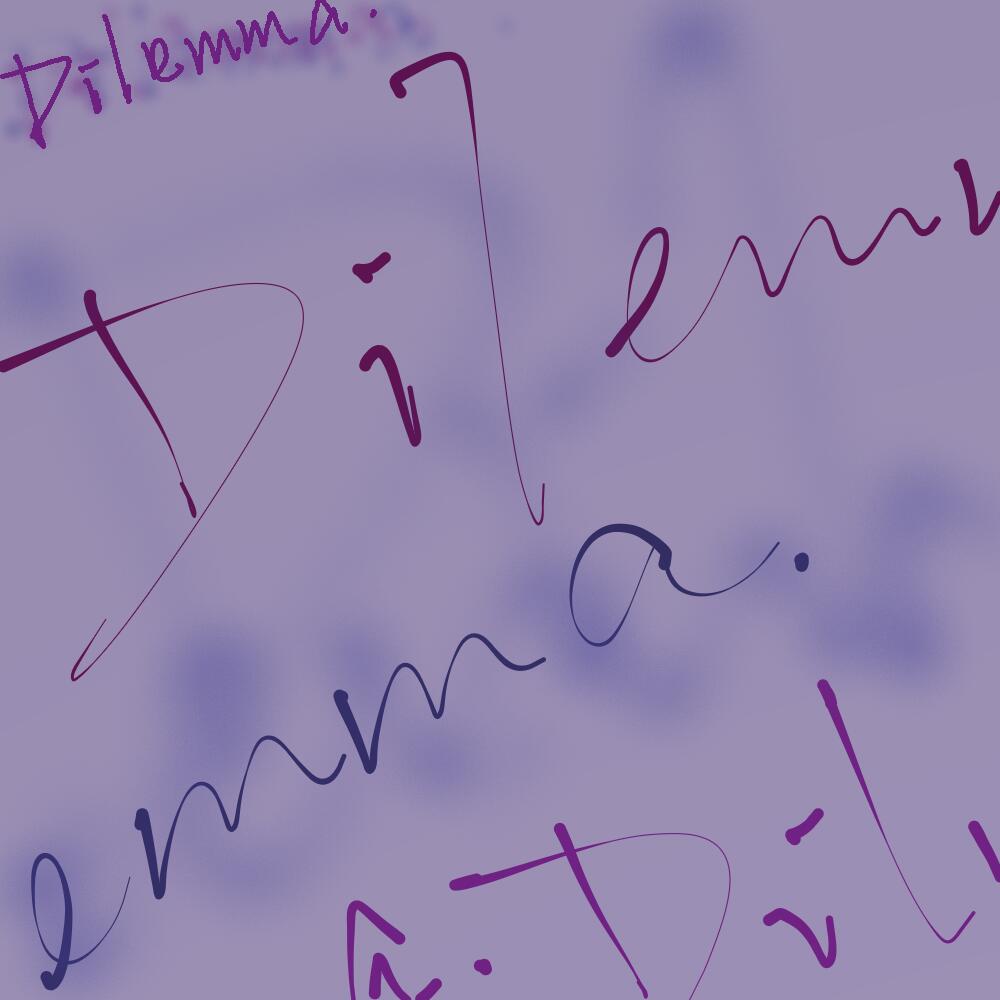 Dilemma.
Dilem
emma.
a. Dil